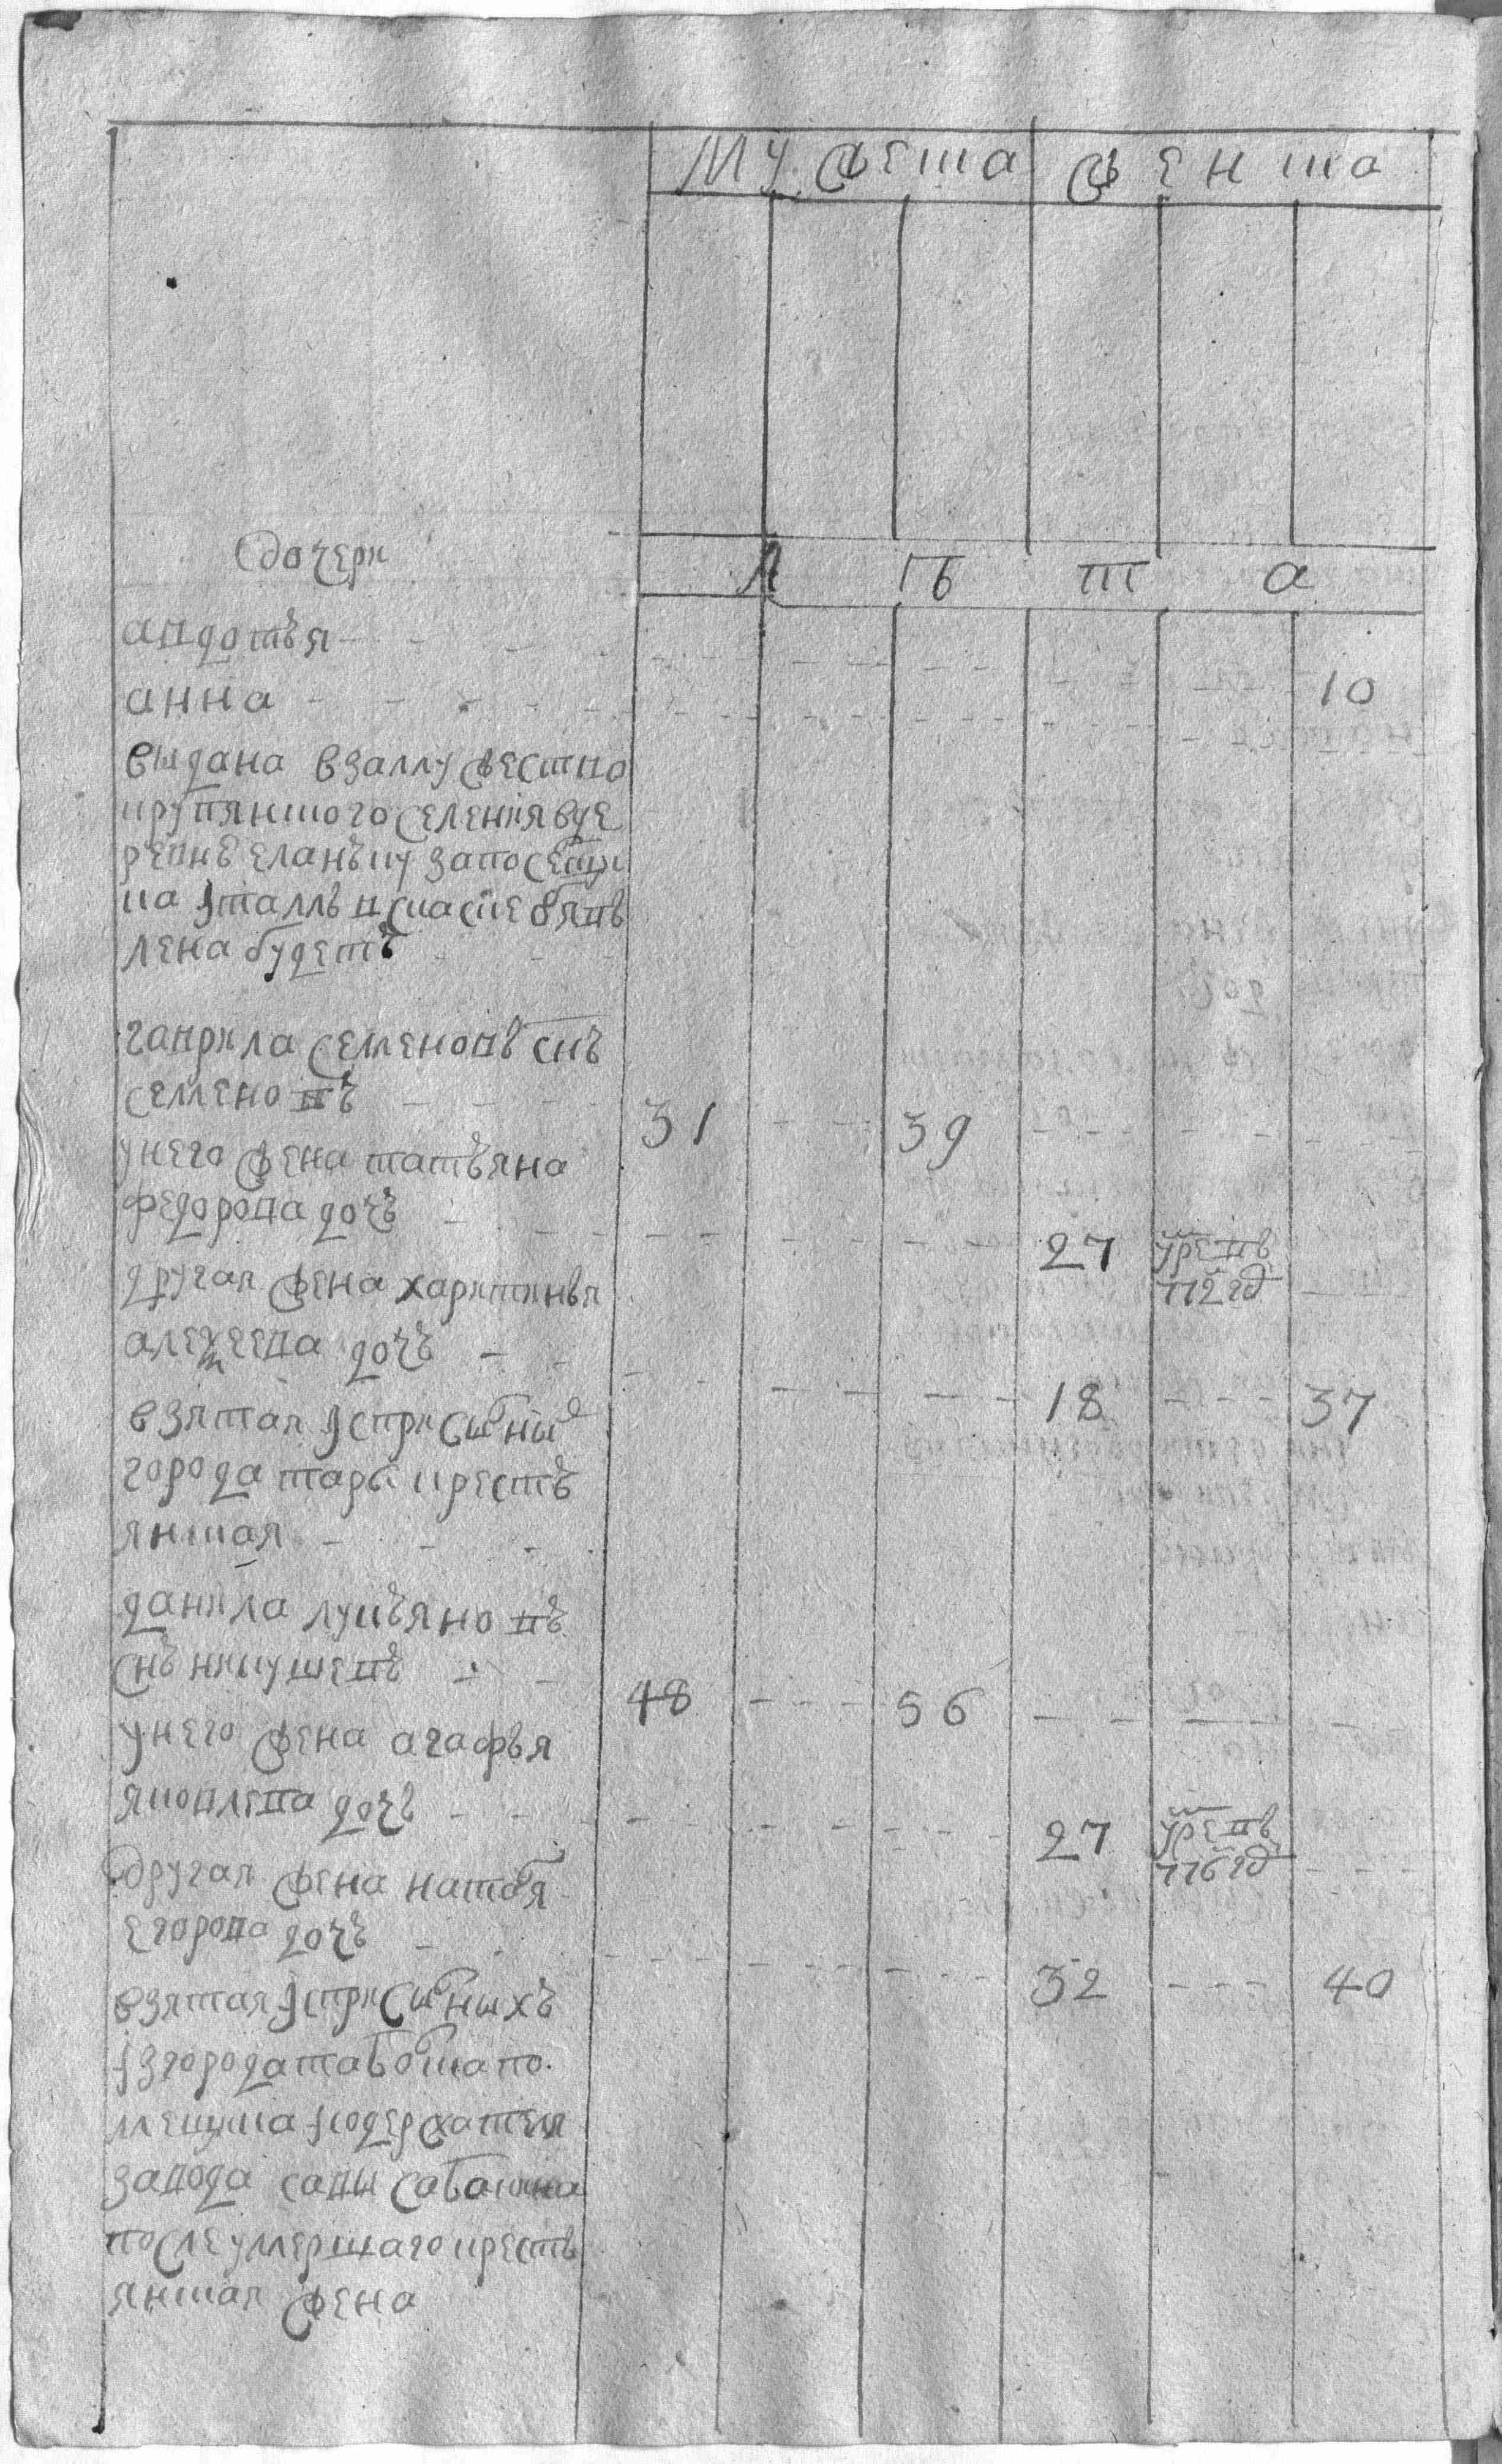 мужеска женска
лѣта
дочери
авдотья
анна 10
выдана взамужество
крутянского селения вде
ревне еланъку за посельщи
ка
лена будетъ
гаврила семеновъ снъ
семеновъ 31 39
у него жена татьяна
федорова дочь 27 умре въ 772 гд
другая жена харитинья
алексеева дочь 18 37
взятая ис присыльных
города тары кресть
янская
данила лукъяновъ
снъ никушевъ 48 56
у него жена агафья
яковлева дочь 27 умре въ 776 гд
другая жена наталья
егорова дочь 32 40
взятая ис присыльныхъ
из города тобольска по
содержателя
завода савы собакина
после умершаго кресть
янская жена